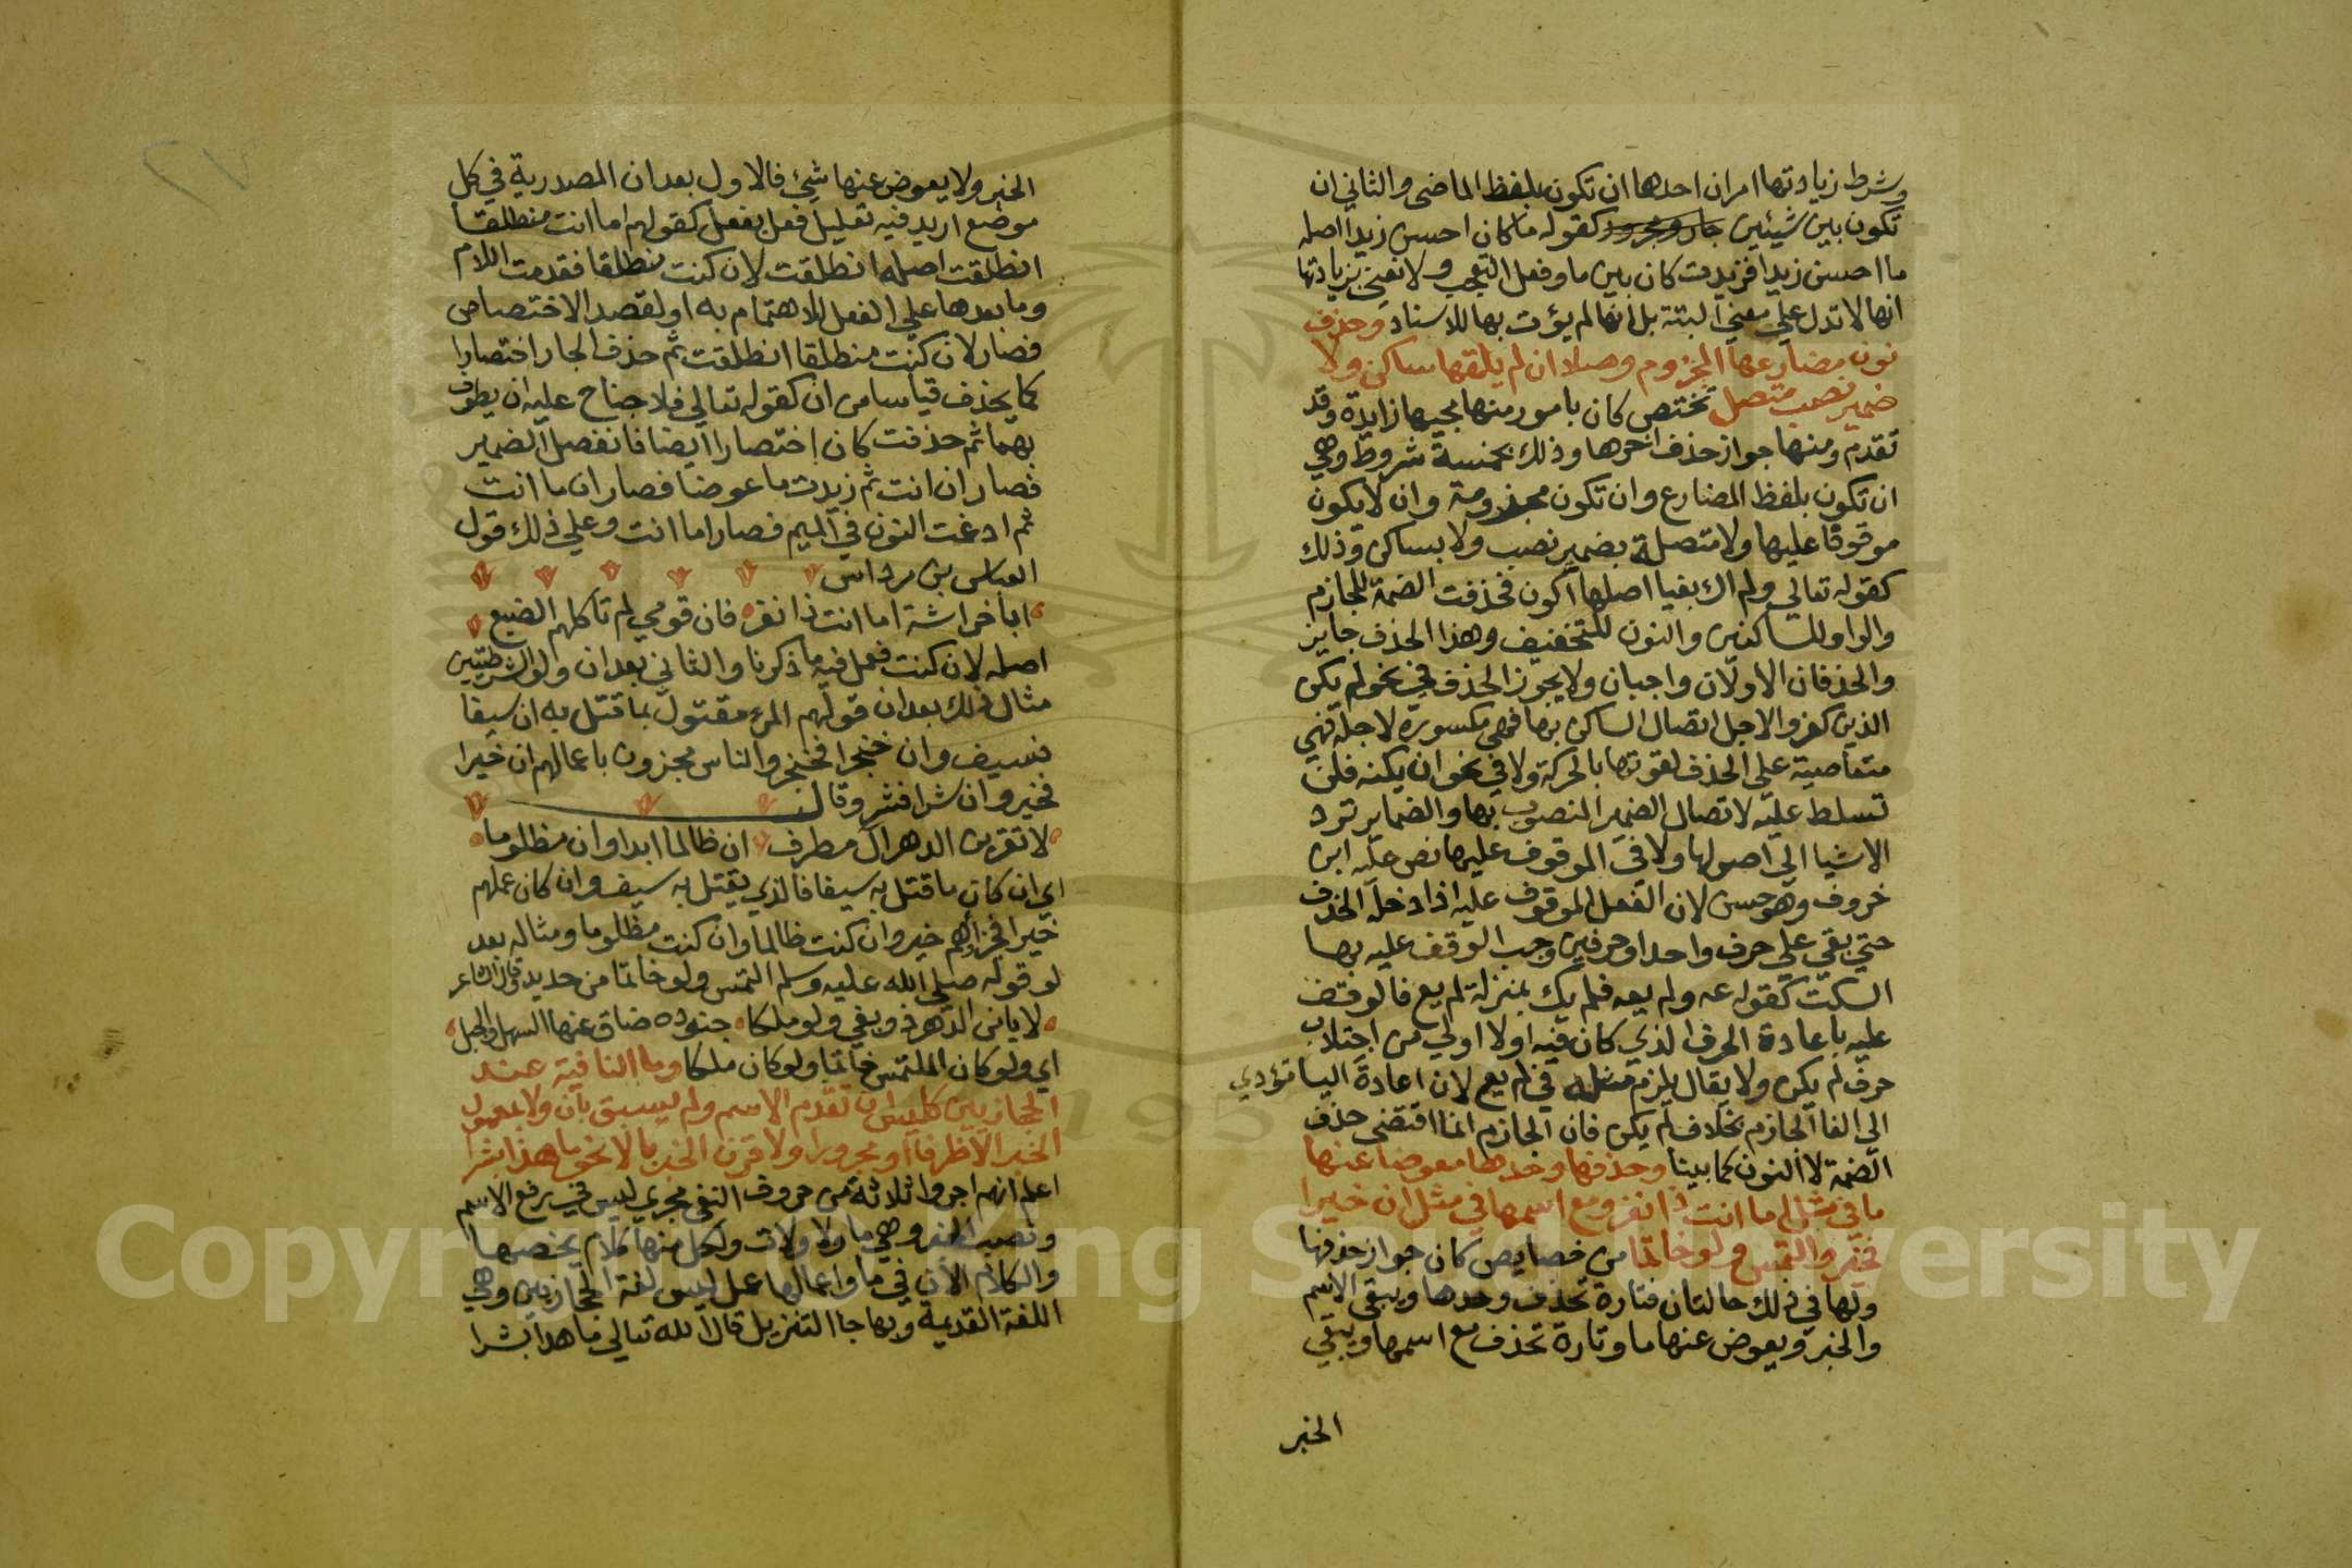 وشرط زيادتها امران احدها ان تكون بلفظ الماضي والثاني ان
تكون بين شيئين جار ومجرور كقوله ما كان احسن زيدا اصله
ما احسن زيدا فزيدت كان بين ما وفعل التعجب ولا نعني بزيادتها
انها لا تدل على معنى البتة بل انها لم يؤت بها للاسناد وحذف
نون مضارعها المجزوم وصلا ان لم يلقها ساكن ولا
ضمير نصب متصل تختص كان بامور منها مجيها زايدة وقد
تقدم ومنها جواز حذف اخرها وذلك بخمسة شروط وهي
ان تكون بلفظ المضارع وان تكون مجزومة وان لا يكون
موقوفا عليها ولا متصلة بضمير نصب ولا بساكن وذلك
كقوله تعالى ولم اك بغيا اصلها اكون فحذفت الضمة للجازم
والواو للساكنين والنون للتخفيف وهذا الحذف جايز
والحذفان الاولان واجبان ولا يجوز الحذف في نحو لم يكن
الذين كفروا لاجل اتصال الساكن بها فهي مكسورة لاجله فهي
متعاصية على الحذف لقوتها بالحركة ولا في نحو ان يكنه فلن
تسلط عليه لاتصال الضمير المنصوب بها والضماير ترد
الاشيا الى اصولها ولا في الموقوف عليها نص عليه ابن
خروف وهو حسن لان الفعل الموقوف عليه اذا دخله الحذف
حتى بقي على حرف واحد او حرفين وجب الوقف عليه بها
السكت كقوله عه ولم يعه فلم يك بمنزلة لم يع فالوقف
عليه باعادة الحرف الذي كان فيه اولا اولى من اجتلاب
حرف لم يكن ولا يقال يلزم مثله في لم يع لان اعادة اليا تؤدي
الى الغا الجازم بخلاف لم يكن فان الجازم انما اقتضى حذف
الضمة لا النون كما بينا وحذفها وحدها معوضا عنها
ما في مثل اما انت ذا نفر ومع اسمها في مثل ان خيرا
فخير والتمس ولو خاتما من خصايص كان جواز حذفها
ولها في ذلك حالتان فتارة تحذف وحدها ويبقى الاسم
والخبر ويعوض عنها ما وتارة تحذف مع اسمها ويبقى
الخبر
الخبر ولا يعوض عنها شئ فالاول بعد ان المصدرية في كل
موضع اريد فيه تعليل فعل بفعل كقولهم اما انت منطلقا
انطلقت اصله انطلقت لان كنت منطلقا فقدمت اللام
وما بعدها على الفعل للاهتمام به او لقصد الاختصاص
فصار لان كنت منطلقا انطلقت ثم حذف الجار اختصارا
كما يحذف قياسا من ان كقوله تعالى فلا جناح عليه ان يطوف
بهما ثم حذفت كان اختصارا ايضا فانفصل الضمير
فصار ان انت ثم زيدت ما عوضا فصار ان ما انت
ثم ادغمت النون في الميم فصار اما انت وعلى ذلك قول
العباس بن مرداس
ابا خراشة اما انت ذا نفر فان قومي لم تاكلهم الضبع
اصله لان كنت فعمل فيه ما ذكرنا والثاني بعد ان ولو الشرطيتين
مثال ذلك بعد ان قولهم المرء مقتول بما قتل به ان سيفا
فسيف وان خنجرا فخنجر والناس مجزون باعمالهم ان خيرا
فخير وان شرا فشر وقال
لا تقربن الدهر ال مطرف ان ظالما ابدا وان مظلوما
اي ان كان ما قتل به سيفا فالذي يقتل به سيف وان كان عملهم
خيرا فجزاهم خير وان كنت ظالما وان كنت مظلوما ومثاله بعد
لو قوله صلى الله عليه وسلم التمس ولو خاتما من حديد وقال الشاعر
لا يامن الدهر ذو بغي ولو ملكا جنوده ضاق عنها السهل والجبل
اي ولو كان الملتمس خاتما ولو كان ملكا وما النافية عند
الحجازيين كليس ان تقدم الاسم ولم يسبق بان ولا بمعمول
الخبر الا ظرفا او مجرورا ولا قرن الخبر بالا نحو ما هذا بشرا
اعلم انهم اجروا ثلاثة من حروف النفي مجرى ليس في رفع الاسم
ونصب الخبر وهي ما ولا ولات ولكل منها كلام يخصها
والكلام الان في ما واعمالها عمل ليس لغة الحجازيين وهي
اللغة القديمة وبها جا التنزيل قال الله تعالى ما هذا بشرا
Copyright © King Saud University